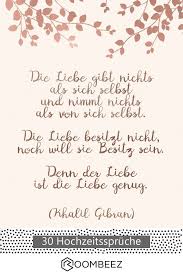 Die Liebe gibt nichts
als sich selbst
und nimmt nichts
als von sich selbst.
Die Liebe besitzt nicht,
noch will sie Besitz sein.
Denn der Liebe
ist die Liebe genug.
(Khalil Gibran)
30 Hochzeitssprüche
ROOMBEEZ